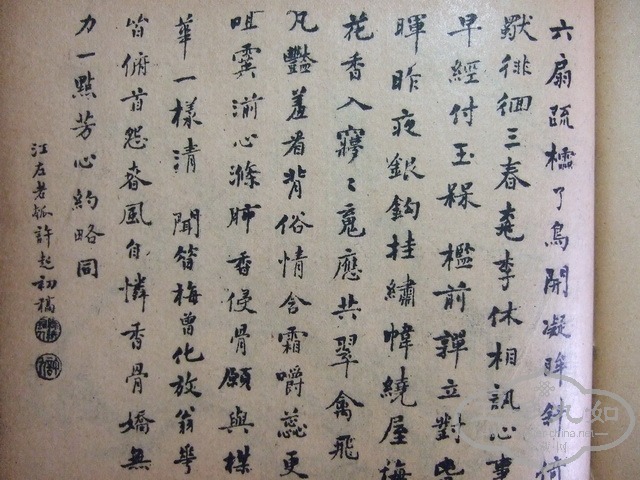 六扇疏櫺了鳥開凝眸斜
徘徊三春堯李休相訊心事
早經付玉槑檻前嚲立對
暉昨夜銀鉤挂繡幃繞屋梅
花香入㝱〻魂應共翠禽飛
凡豔羞看背俗情含霜嚼蕊更
咀霙湔心滌肺香侵骨願與槑
華一樣清 聞梅曾化放翁華
皆俯首怨春風自憐香骨嬌無
力一點芳心約略同
江左老狐許起初稿